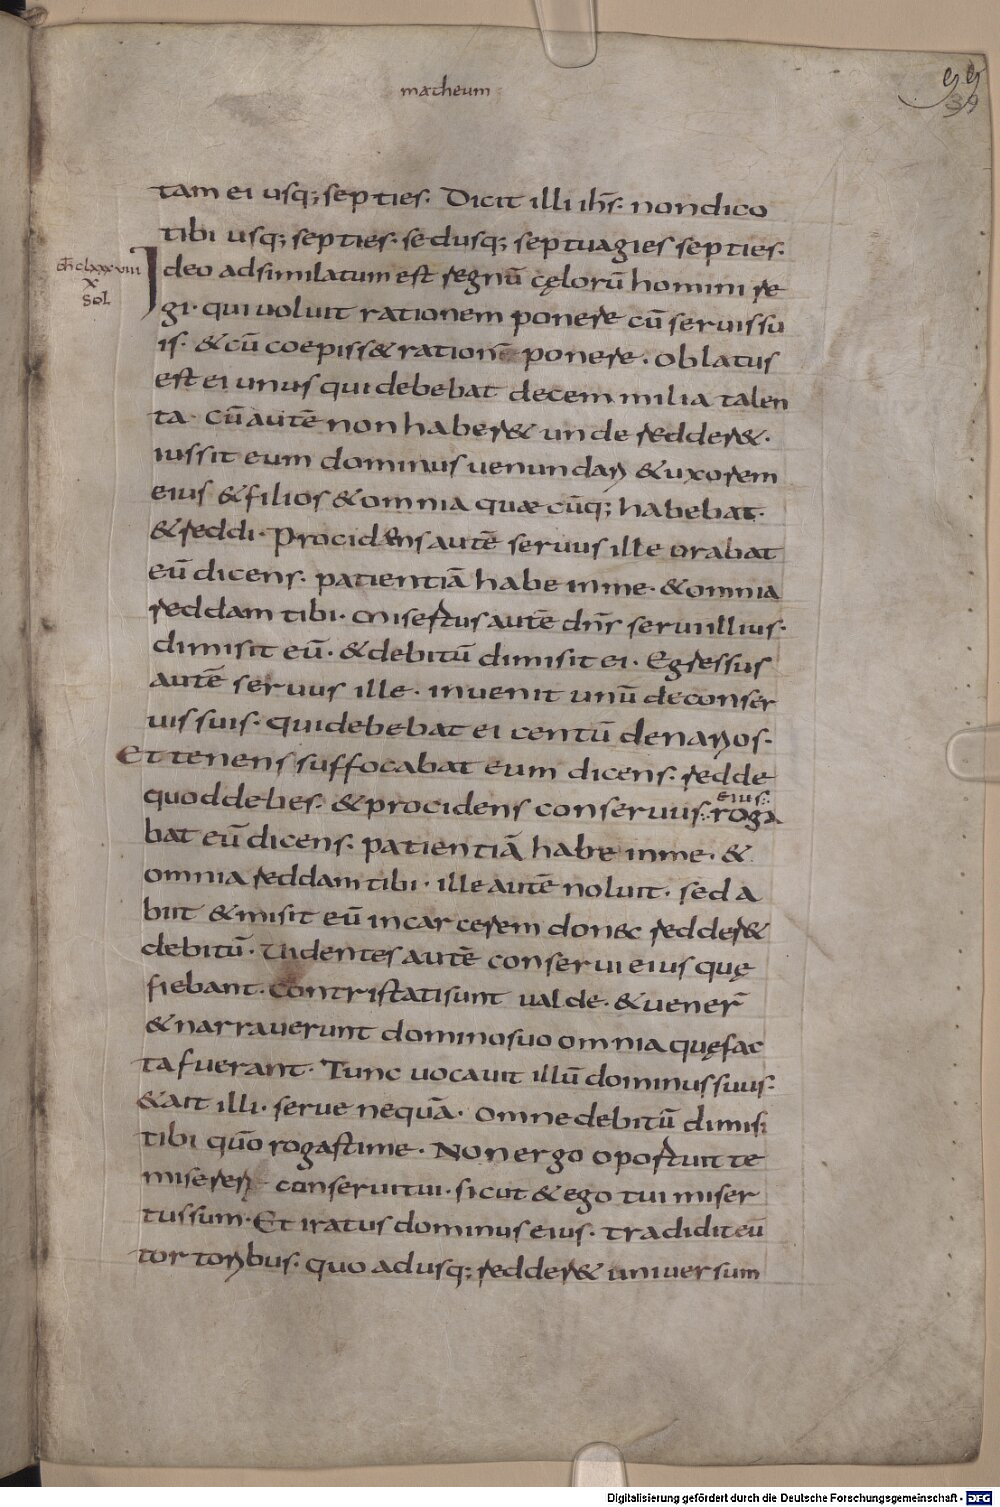 matheum
99
39
tam ei usq; septies. Dicit illi ihs̄. non dico
tibi usq; septies. sed usq; septuagies septies.
mt̄ clxxxviii
x
Sol.
Ideo adsimilatum est regnū cęlorū homini re
gi. qui voluit rationem ponere cū servis su
is. & cū coepiss& rationē ponere. oblatus
est ei unus qui debebat decem milia talen
ta. Cū autē non haber& unde redder&.
iussit eum dominus uenundari & uxorem
eius & filios & omnia quæcūq; habebat.
& reddi. Procidens autē servus ille orabat
eū dicens. patientiā habe in me. & omnia
reddam tibi. Misertus autē dn̄s servi illius.
dimisit eū. & debitū dimisit ei. Egressus
autē servus ille. invenit unū de conser
vis suis. qui debebat ei centū denarios.
Et tenens suffocabat eum dicens. redde
quod debes. & procidens conservus eius: roga
bat eū dicens. patientiā habe in me. &
omnia reddam tibi. ille autē noluit. sed a
biit & misit eū in carcerem donec redder&
debitū. Videntes autē conservi eius quę
fiebant. contristati sunt valde. & vener̄
& narraverunt domino suo omnia quę fac
ta fuerant. Tunc vocavit illū dominus suus.
& ait illi. serve nequā. omne debitū dimisi
tibi quō rogasti me. Non ergo oportuit te
misereri conservi tui. sicut & ego tui miser
tus sum. Et iratus dominus eius. tradidit eū
tortoribus. quo adusq; redder& universum
Digitalisierung gefördert durch die Deutsche Forschungsgemeinschaft - DFG